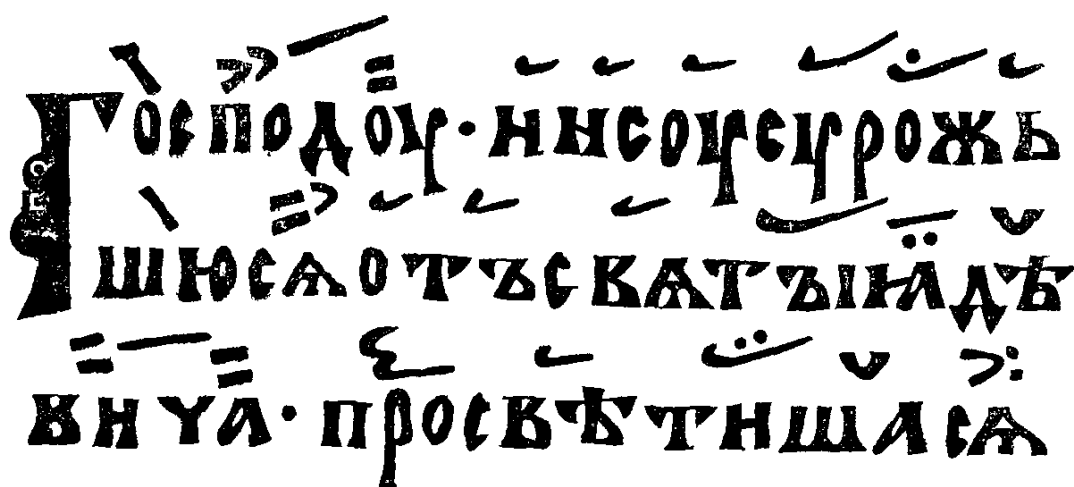 ГОСПОДОУ·ИИСОУСУРОЖЬ
ШЮСѦОТЪСВѦТЪІꙖДѢ
ВИЧА·ПРОСВѢТИШАСѦ